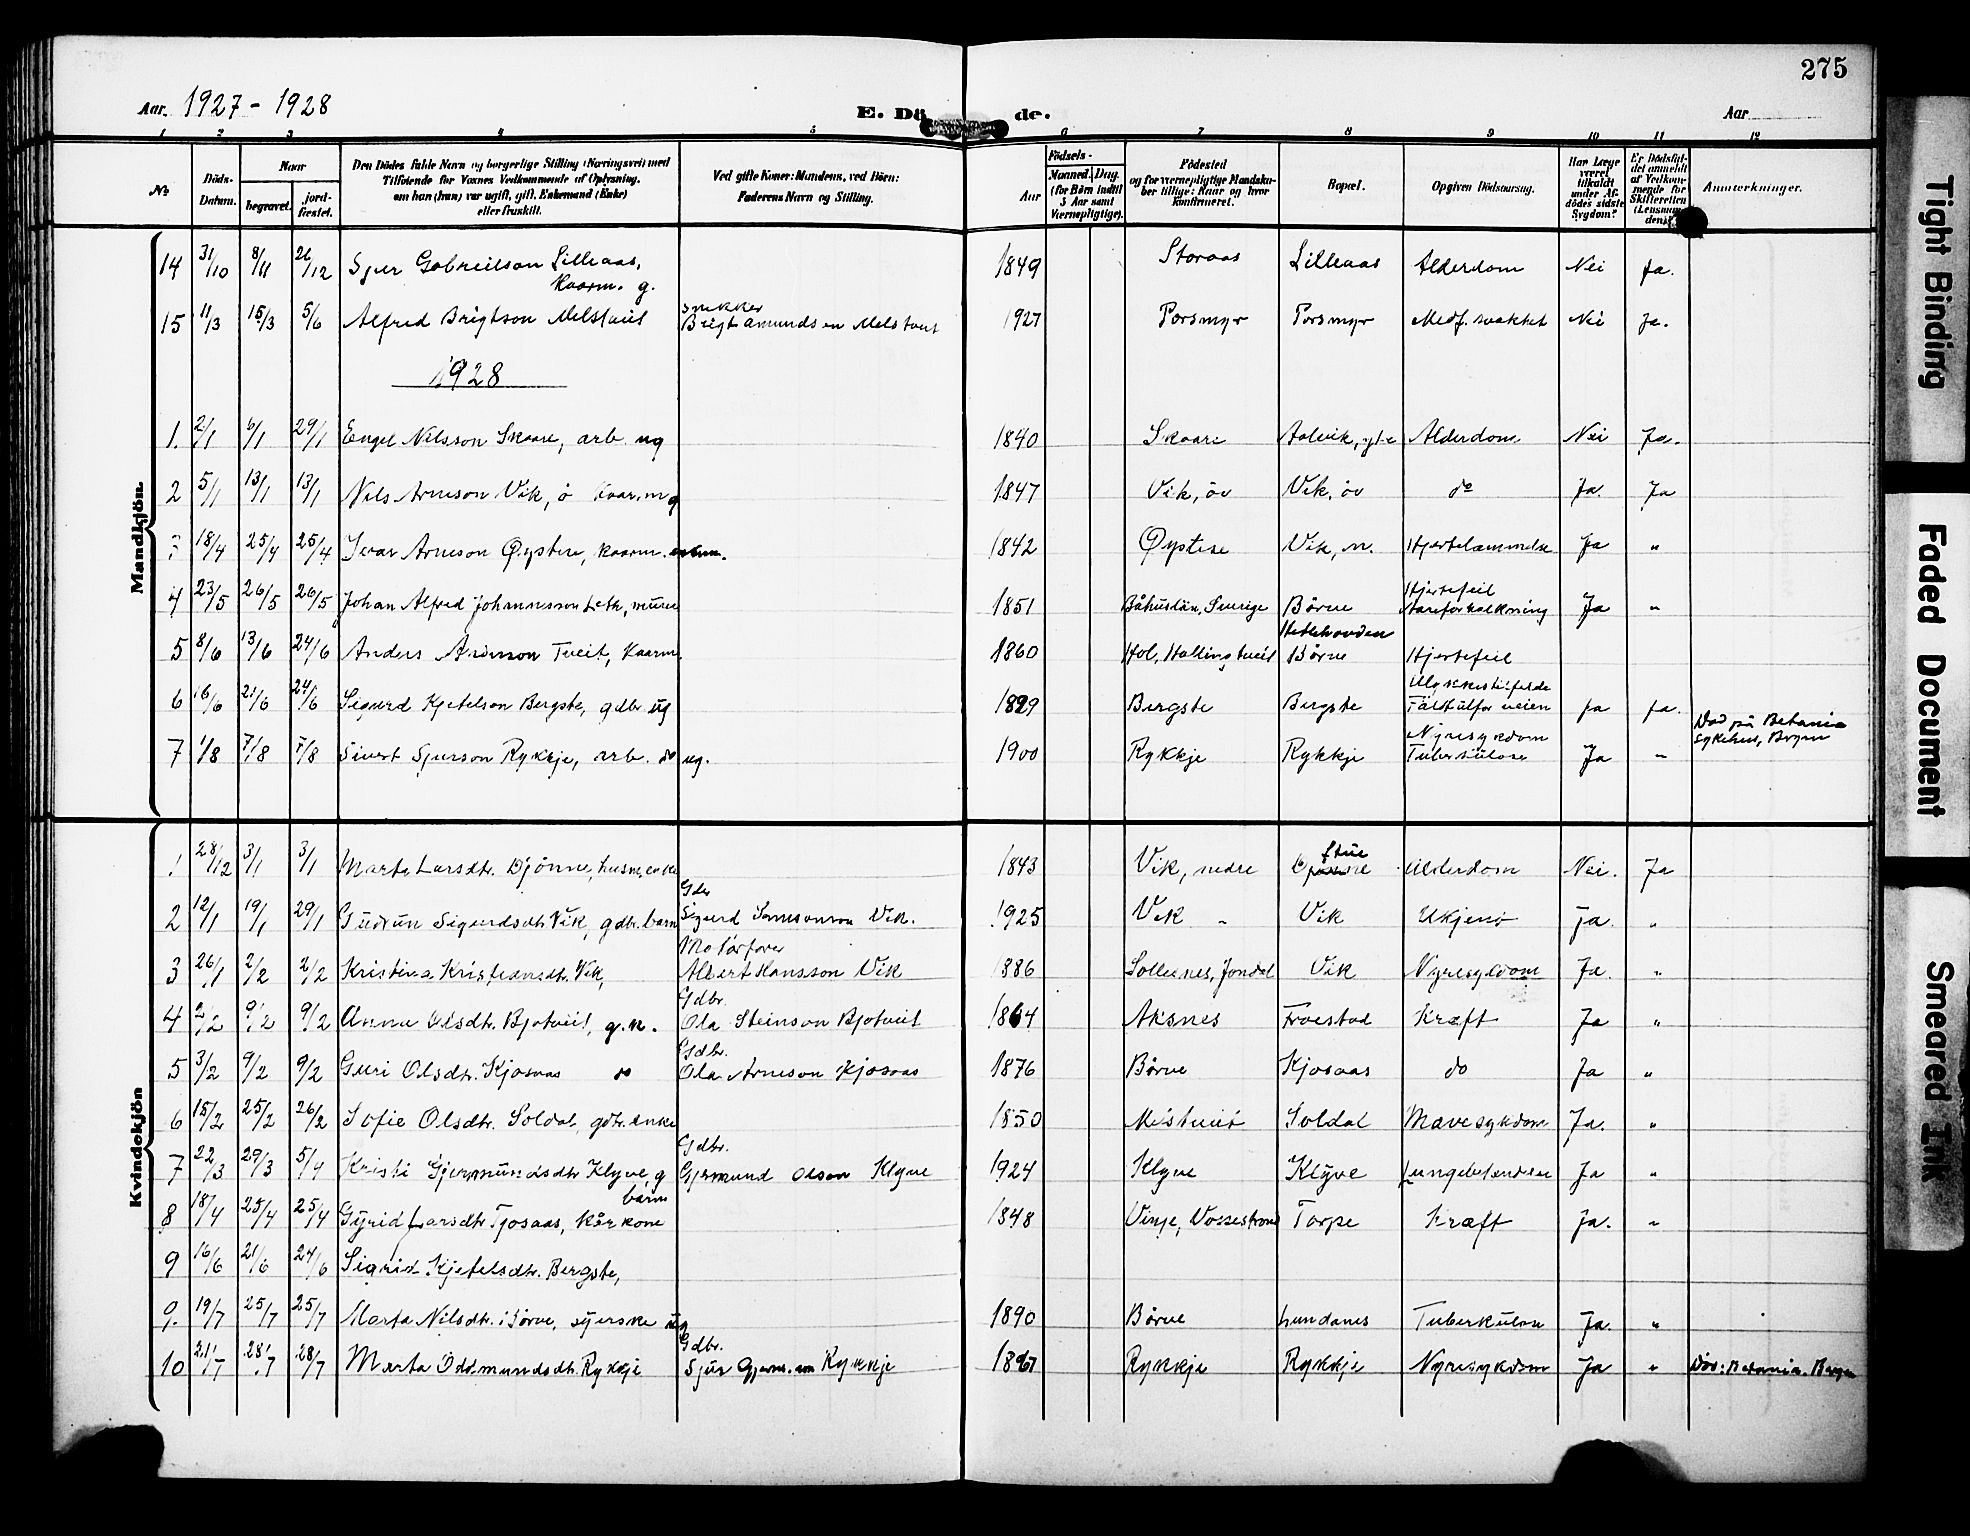 275
Aar. 1927 - 1928 E. Dö de. Aar
1 2 3 4 5 6 7 8 9 10 11 12
№
Döds-Datum.
Naar
begravet.
jord-fæstet.
Den Dödes fulde Navn og borgerlige Stilling (Næringsvei) med
Tilföiende for Voxnes Vedkommende af Oplysning,
om han (hun) var ugift, gift, Enkemand (Enke)
eller fraskilt.
Ved gifte Koner: Mandens, ved Börn:
Faderens Navn og Stilling.
Födsels-
Aar
Maaned. Dag.
(for Börn indtil
5 Aar samt
Værnepligtige).
Födested
og for værnepligtige Mandskaber tillige: Naar og hvor
konfirmeret.
Bopæl.
Opgiven Dödsaarsag.
Har Læge været tilkaldt under Afdödes sidste Sygdom?
Er Dödsfaldet anmeldt af Vedkommende for Skifteretten (Lensmanden)?
Anmærkninger.
Mandkjön.
14 31/10 8/11 26/12 Sjur Gabrielson Lilleaas, 1849 Storaas Lilleaas Alderdom Nei Ja.
Kaarm. g.
15 11/3 15/3 5/6 Alfred Brigtson Melstveit snekker 1927 Porsmyr Porsmyr Medf. svakhet Nei Ja.
Brigt Amundsen Melstveit
1928
1. 2/1 6/1 29/1 Engel Nilsson Skaare, arb. ug 1840 Skaare Aalvik, ytre Alderdom Nei Ja.
2 5/1 13/1 13/1 Nils Arneson Vik, ö Kaarm g 1847 Vik, öv Vik, öv do Ja. Ja
3 18/4 25/4 25/4 Ivar Arneson Øystese, kaarm. enkem. 1842 Øystese Vik, n. Hjertelammelse Ja "
4 23/5 26/5 26/5 Johan Alfred Johannesson Leth, murer 1851 Båhuslän, Sverige Börve Hjertefeil Aareforkalkning Ja "
5 8/6 13/6 24/6 Anders Andersson Tveit, Kaarm. 1860 Hol, Hallingtveit Hetlehovden Börve Hjertefeil
6 16/6 21/6 24/6 Sigurd Kjetelson Bergste, gdbr. ug 1899 Bergste Bergste Ulykkestilfelde Falt utfor veien Ja Ja.
7 1/8 7/8 7/8 Sivert Sjurson Rykkje, arb. do ug. 1900 Rykkje Rykkje Nyresykdom Tuberkulose Ja " Död på Betania sykehus, Bergen
Kvindekjön
1 28/12 3/1 3/1 Marta Larsdtr. Djönne, husm. enke 1843 Vik, nedre stue Alderdom Nei. Ja
2 12/1 19/1 29/1 Gudrun Sigurdsdtr. Vik, gdbr. barn Gdbr. Sigurd Samsonson Vik. 1925 Vik " Vik Ukjent Ja. "
3 26/1 2/2 2/2 Kristina Kristiansdtr. Vik, Motorförer Albert Hansson Vik 1886 Solesnes, Jondal Vik Nyresykdom Ja. "
4 2/2 9/2 9/2 Anna Olsdtr. Bjotveit, g.k. Gdbr. Ola Steinson Bjotveit 1864 Aksnes Froestad Kræft Ja "
5 3/2 9/2 9/2 Guri Olsdtr. Kjosaas do Gdbr. Ola Arneson Kjosaas 1876 Börve Kjosaas do Ja "
6 15/2 25/2 26/2 Sofie Olsdtr. Soldal, gdbr. enke 1850 Melstveit Soldal Mavesykdom Ja. "
7 22/3 29/3 5/4 Kristi Gjermundsdtr. Klyve, g barn Gdbr. Gjermund Olson Klyve 1924 Klyve Klyve Lungebetendelse Ja "
8 18/4 25/4 25/4 Gyrid Larsdtr. Tjosaas, kårkone 1848 Vinje, Vossestrand Torpe Kræft Ja. "
9 16/6 21/6 24/6 Sigrid Kjetelsdtr. Bergste,
9. 19/7 25/7 25/7 Marta Nilsdtr. Börve, syerske ug 1890 Börve Lundanes Tuberkulose Ja. "
10 21/7 28/7 28/7 Marta Oddmundsdtr. Rykkje Gdbr. Sjur Gjerm.son Rykkje 1867 Rykkje Rykkje Nyresykdom Ja " Död: Betania. Bergen
Tight Binding
Faded Document
Smeared Ink